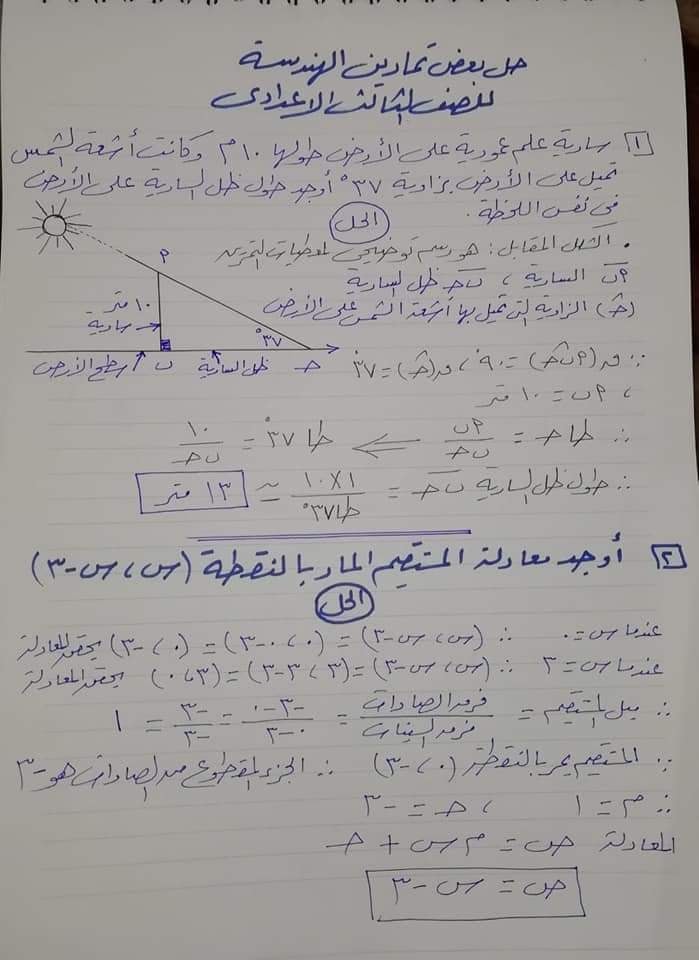 حل بعض تمارين الهندسة
للصف الثالث الاعدادى
١ سارية علم عمودية على الأرض طولها ١٠ م وكانت أشعة الشمس
تميل على الأرض بزاوية ٣٧° أوجد طول ظل السارية على الأرض
فى نفس اللحظة.
الحل
• الشكل المقابل: هو رسم توضيحى لمعطيات التمرين
م ب السارية ، ب حـ ظل السارية
(حـ) الزاوية التى تميل بها أشعة الشمس على الأرض
م
١٠ متر
سارية
٣٧°
حـ
ظل السارية
ب
سطح الأرض
∵ ق(م ب حـ) = ٩٠° ، ق(حـ) = ٣٧°
، م ب = ١٠ متر
∴ طا حـ = م ب / ب حـ ⟸ طا ٣٧° = ١٠ / ب حـ
∴ طول ظل السارية ب حـ = ١×١٠ / طا ٣٧° ≃ ١٣ متر
٢ أوجد معادلة المستقيم المار بالنقطة (س ، س - ٣)
الحل
عندما س = ٠ ∴ (س ، س - ٣) = (٠ ، ٠ - ٣) = (٠ ، -٣) يحقق المعادلة
عندما س = ٣ ∴ (س ، س - ٣) = (٣ ، ٣ - ٣) = (٣ ، ٠) يحقق المعادلة
∴ ميل المستقيم = فرق الصادات / فرق السينات = -٣ - ٠ / ٠ - ٣ = -٣ / -٣ = ١
∵ المستقيم يمر بالنقطة (٠ ، -٣) ∴ الجزء المقطوع من الصادات هو -٣
∴ م = ١ ، حـ = -٣
المعادلة ص = م س + حـ
ص = س - ٣